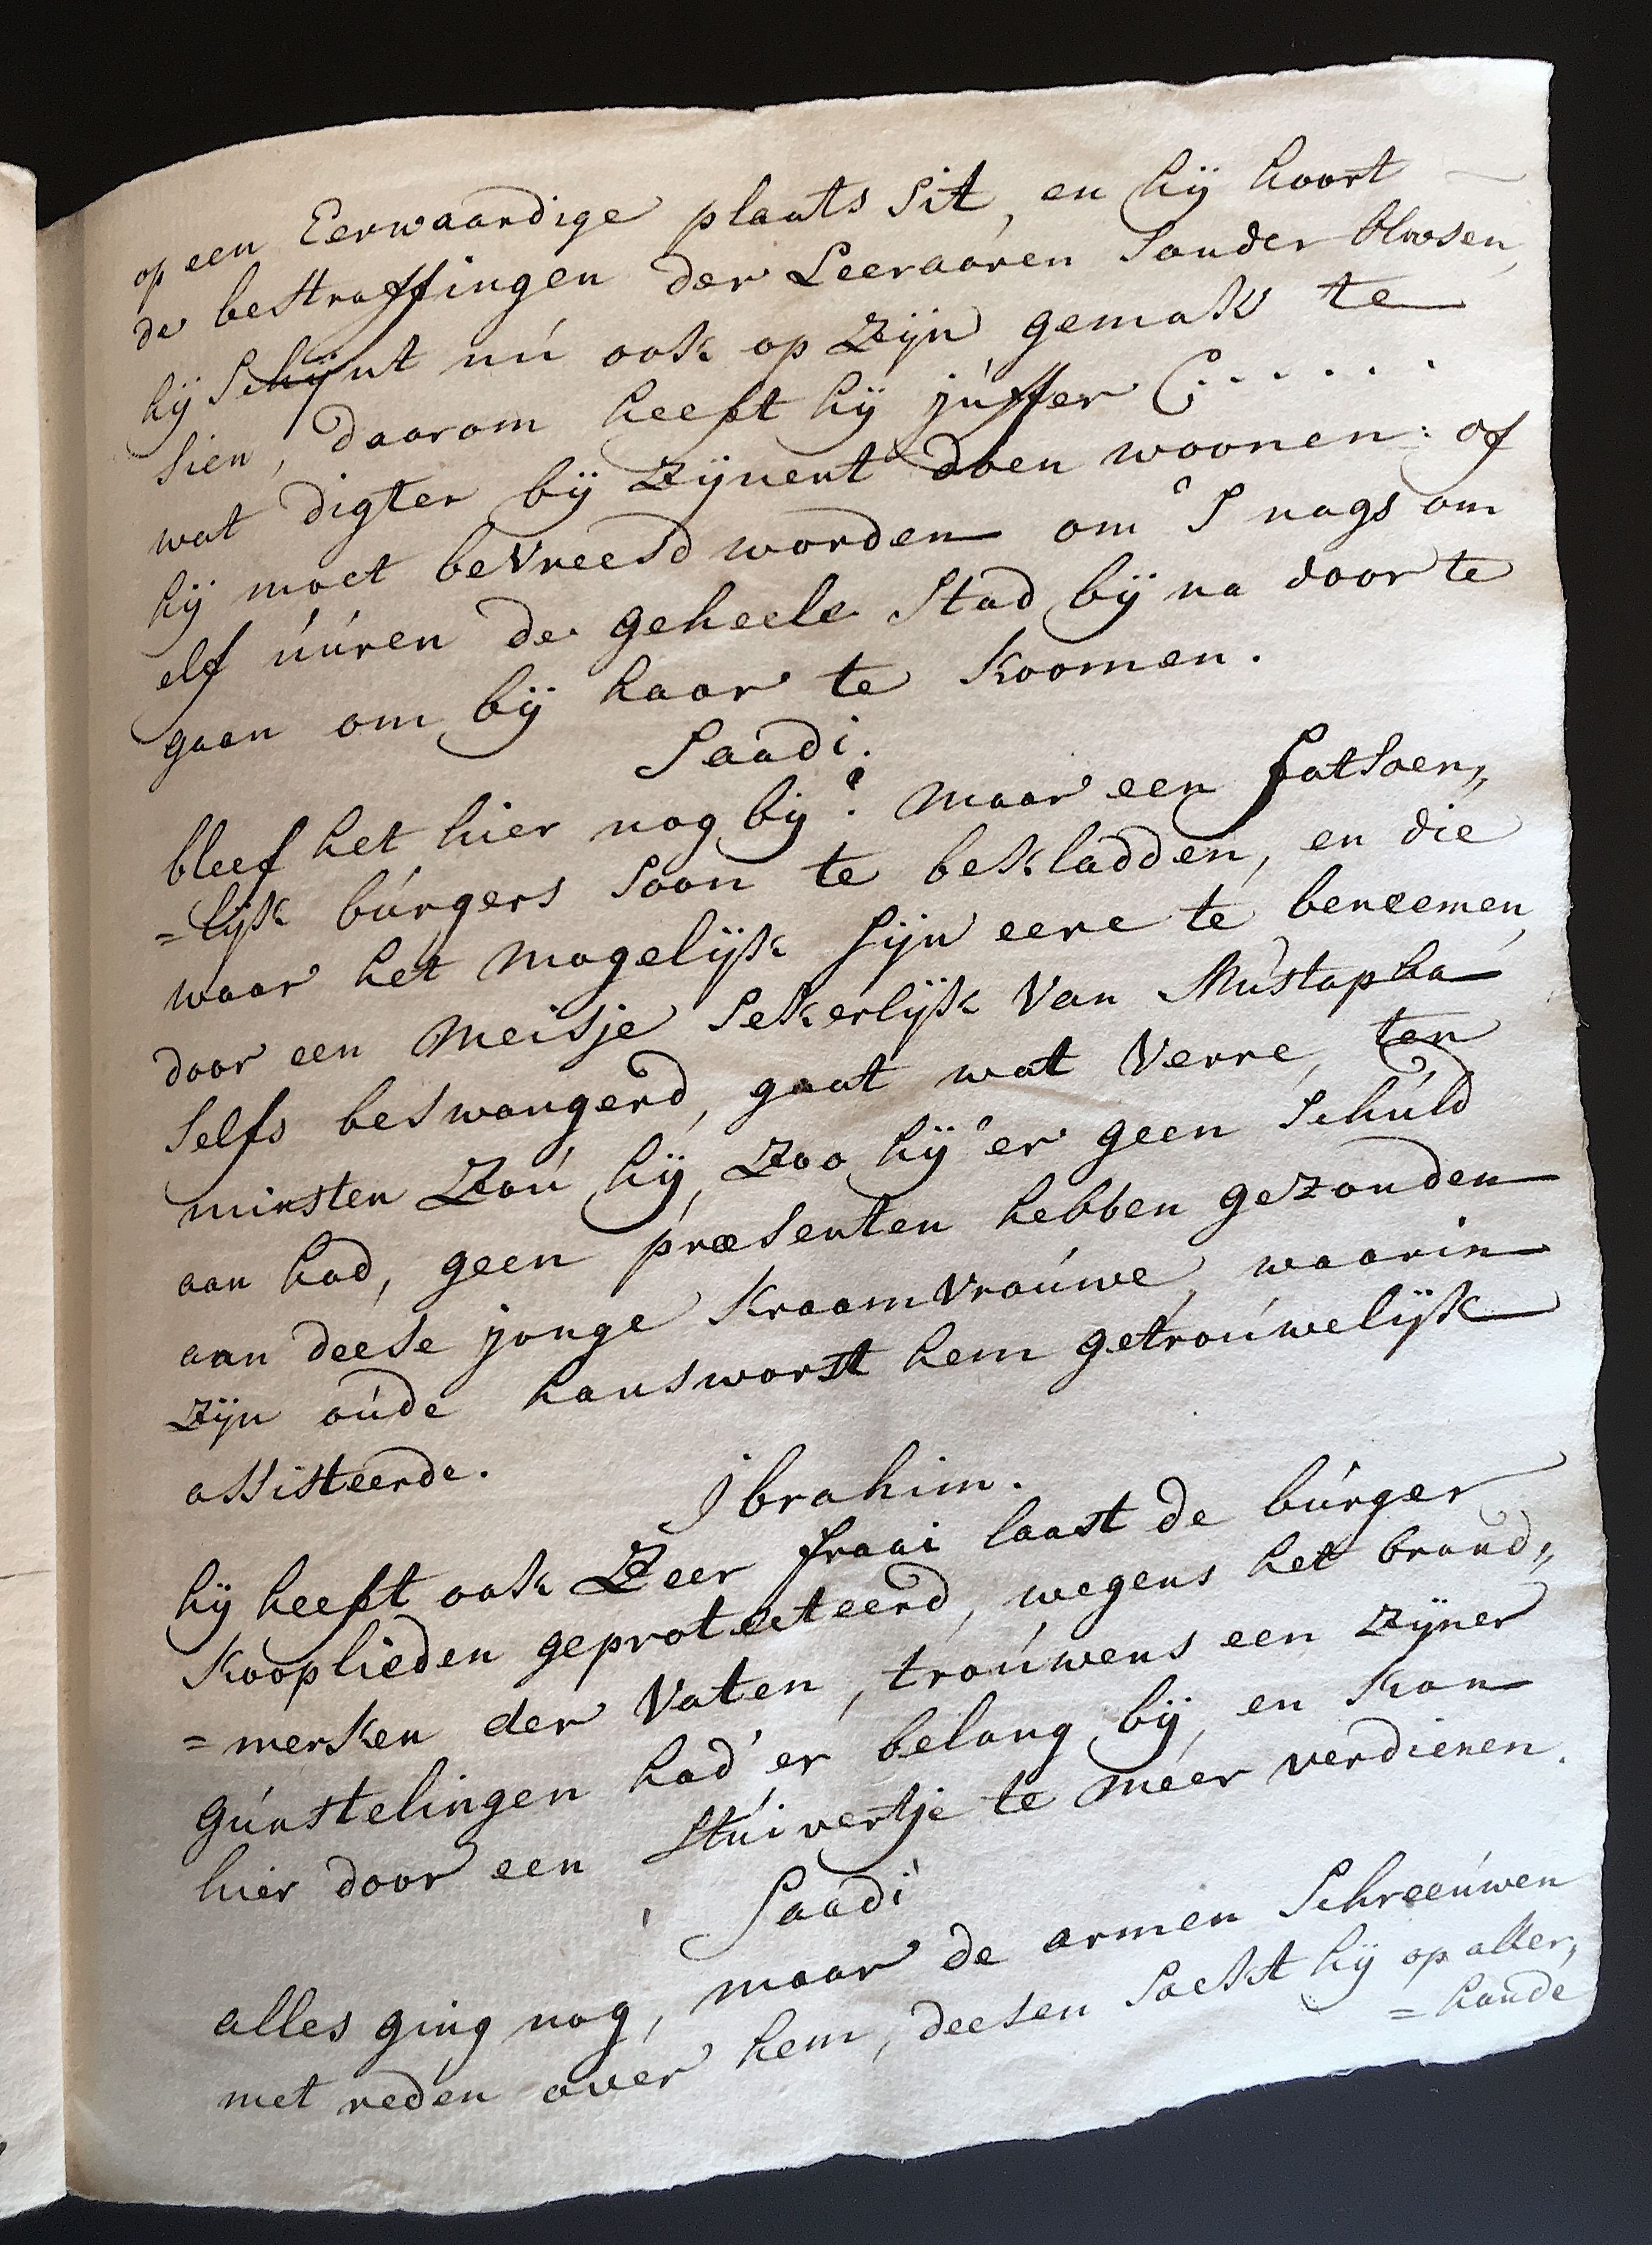 op een Eerwaardige plaats sit, en hij hoort
de bestraffingen der Leeraaren sonder bloosen,
hij schijnt nú ook op zijn gemak te
sien, daarom heeft hij júffer C......
wat digter bij zijnent doen woonen: of
hij moet bevreesd worden om 's nags om
elf úúren de geheele stad bij na door te
gaan om bij haar te koomen.
Saadi.
bleef het hier nog bij? maar een fatsoen„
=lijk búrgers soon te bekladden, en die
waar het mogelijk sijn eere te beneemen,
door een meisje sekerlijk van Mústapha
selfs beswangerd, gaat wat verre, ten
minsten zoú hij, zoo hij 'er geen schúld
aan had, geen præsenten hebben gezonden
aan deese jonge kraamvroúwe, waarin
zijn oúde hansworst hem getroúwelijk
assisteerde.
Ibrahim.
hij heeft ook zeer fraai laast de búrger
kooplieden geprotecteerd, wegens het brand„
=merken der vaten, troúwens een zijner
gúnstelingen had 'er belang bij, en kan
hier door een stúivertje te meer verdienen.
Saadi
alles ging nog, maar de armen schreeúwen
met reden over hem, deesen soekt hij op aller„
=hande